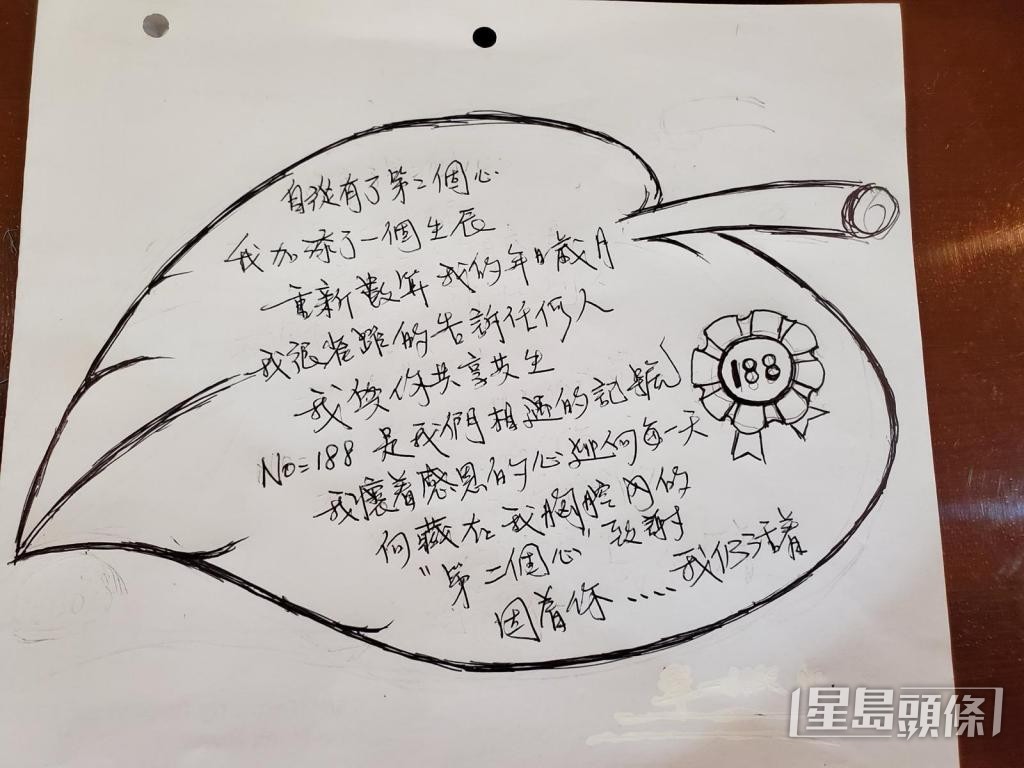 自從有了第二個心
我加添了一個生辰
重新數算我的年日歲月
我很雀躍的告訴任何人
我與你共享共生
No=188 是我們相遇的記號
我懷着感恩的心迎向每一天
向藏在我胸腔內的
"第二個心"致謝
因着你.....我仍活着
188
星島頭條